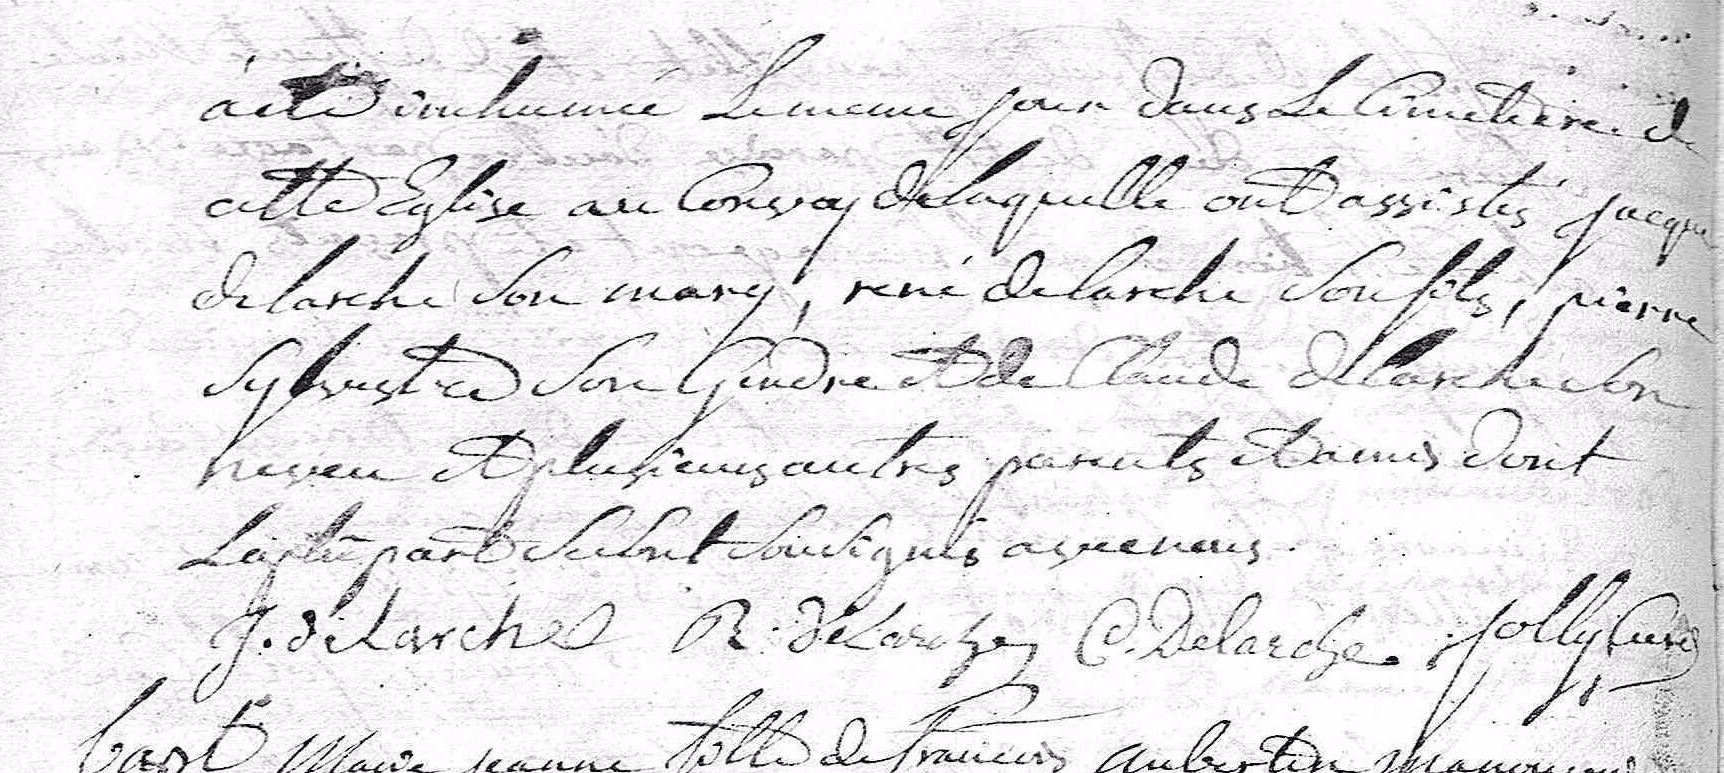 a eté inhumée Le meme jour dans Le Cimetiere de
cette Eglise au Convoy de laquelle ont assistés jacque
delarche Son mary, rené delarche Son fils, pierre
Sylvestre Son Gendre et de Claude delarche Son
neveu et plusieurs autres parents et amis dont
La plupart Se sont Soussignés avec nous.
J. deLarche R. deLarche C. Delarche jolly Curé
bapt Marie jeanne fille de francois aubertin